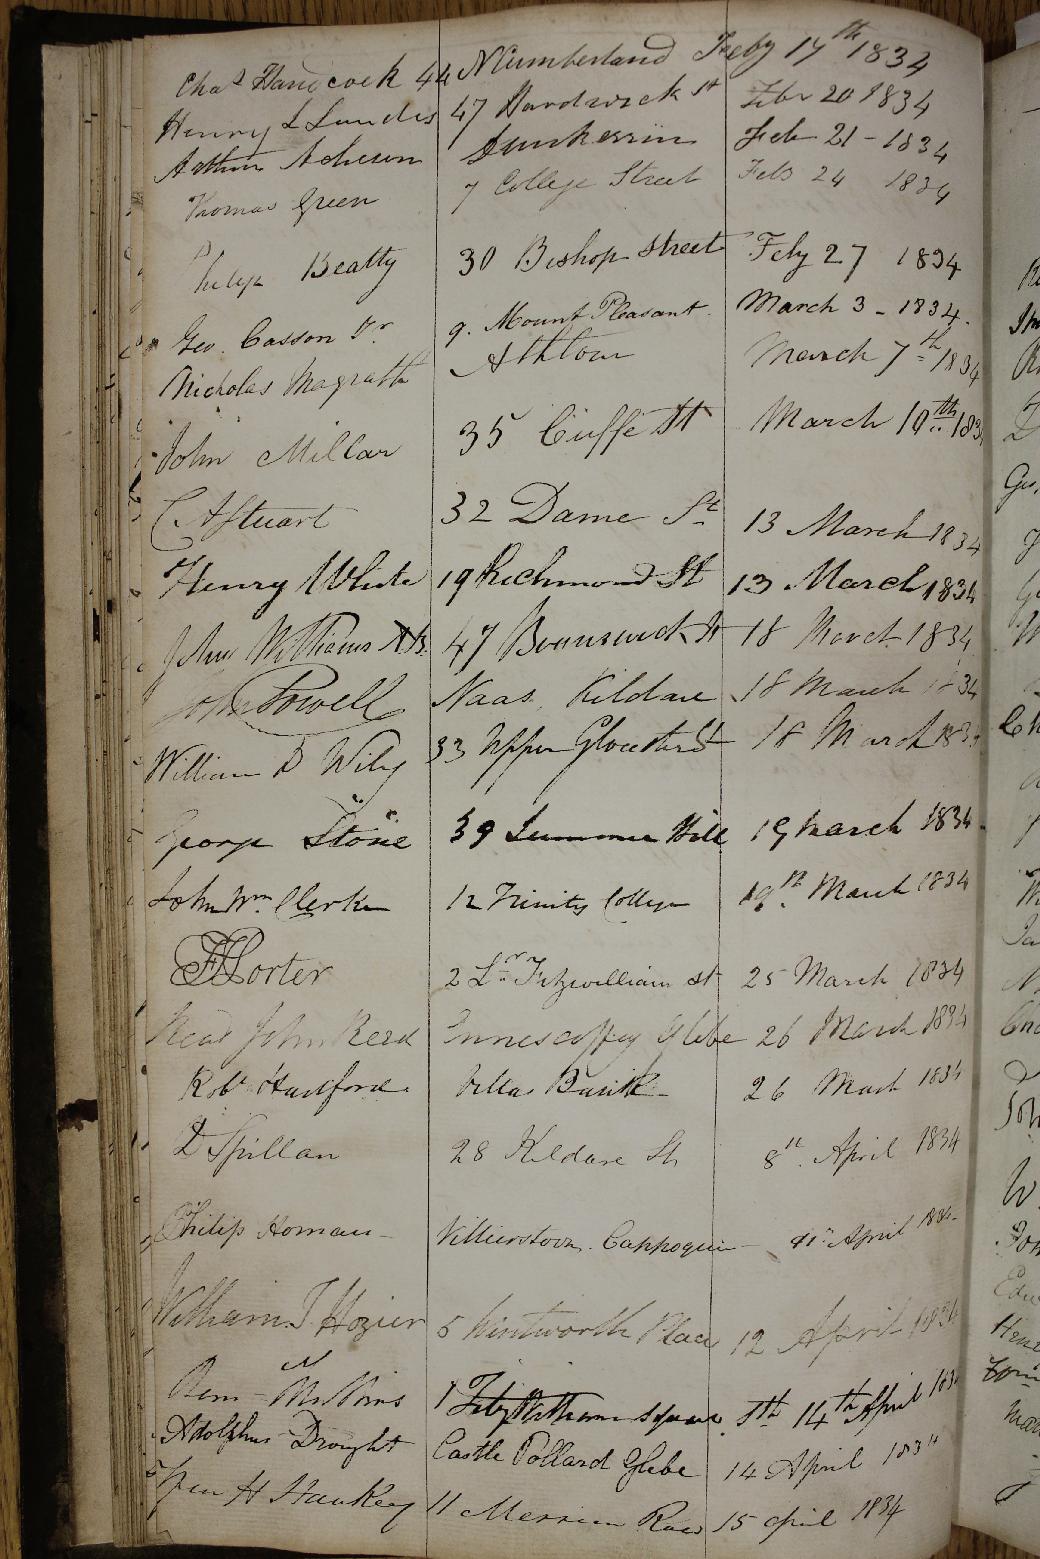 Chas Handcock 44 N Cumberland Feby 17th 1834
Henry L Lundis 47 Hardwick st Febr 20 1834
Arthur Acheson Dunkerrin Feb 21 - 1834
Thomas Green 7 College Street Feb 24 1834
Philip Beatty 30 Bishop Street Feby 27 1834
Geo. Casson Jr 9. Mount Pleasant March 3 - 1834.
Nicholas Magrath Athlow March 7th 1834
John Millar 35 Cuffe St March 10th 183
C A Stuart 32 Dame St 13 March 1834
Henry White 19 Richmond St 13 March 1834
John Williams AB. 47 Brunswick St 18 March 1834
John Powell Naas, Kildare 18 March 1834
William D Wily 33 Upper Gloucester St 18 March 183
George Stone 39 Summer Hill 19 March 1834
John Wm. Clerke 12 Trinity College 19th March 1834
Porter 2 Lr Fitzwilliam st 25 March 1834
John Reed Enniscoffey Glebe 26 March 1834
Robt Hartford Villa Bank 26 March 1834
D Spillan 28 Kildare St 8th April 1834
Philip Homan - Villierstown. Cappoquin - 11th April 1834
William J Hozier 5 Wentworth Place 12 April 1834
Benn - McMoins 1 Fitzwilliam square 14th April 183
Adolphus Drought Castle Pollard Glebe 14 April 1834
H Hankey 11 Merrion Row 15 april 1834